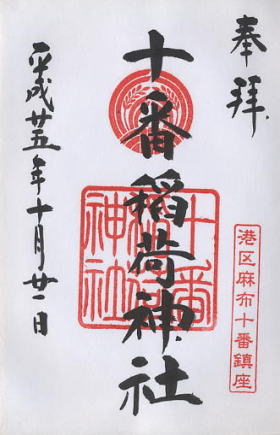 奉拝
港区麻布十番鎮座
十番稲荷神社
十番稲荷神社
平成廿五年十月廿一日